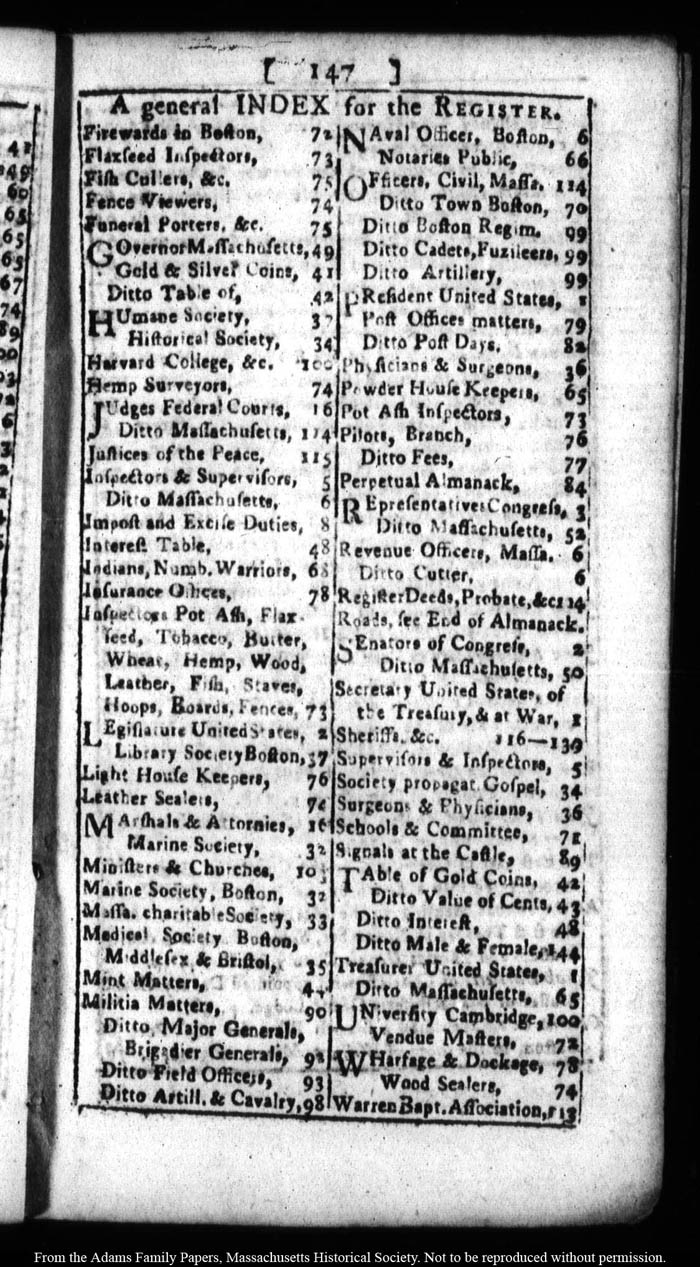 [ 147 ]
A general INDEX for the REGISTER.
Firewards in Boston, 72
Flaxseed Inspectors, 73
Fish Cullers, &c. 75
Fence Viewers, 74
Funeral Porters, &c. 75
GOvernor Massachusetts, 49
Gold & Silver Coins, 41
Ditto Table of, 42
HUmane Society, 37
Historical Society, 34
Harvard College, &c. 100
Hemp Surveyors, 74
JUdges Federal Courts, 16
Ditto Massachusetts, 114
Justices of the Peace, 115
Inspectors & Supervisors, 5
Ditto Massachusetts, 6
Impost and Excise Duties, 8
Interest Table, 48
Indians, Numb. Warriors, 68
Insurance Offices, 78
Inspectors Pot Ash, Flax-
seed, Tobacco, Butter,
Wheat, Hemp, Wood,
Leather, Fish, Staves,
Hoops, Boards, Fences, 73
LEgislature United States, 2
Library Society Boston, 37
Light House Keepers, 76
Leather Sealers, 74
MArshals & Attornies, 16
Marine Society, 32
Ministers & Churches, 103
Marine Society, Boston, 32
Massa. charitable Society, 33
Medical Society Boston,
Middlesex & Bristol, 35
Mint Matters, 44
Militia Matters, 90
Ditto Major Generals,
Brigadier Generals, 92
Ditto Field Officers, 93
Ditto Artill. & Cavalry, 98
NAval Officer, Boston, 6
Notaries Public, 66
OFficers, Civil, Massa. 114
Ditto Town Boston, 70
Ditto Boston Regim. 99
Ditto Cadets, Fuzileers, 99
Ditto Artillery, 99
PResident United States, 1
Post Offices matters, 79
Ditto Post Days. 82
Physicians & Surgeons, 36
Powder House Keepers, 65
Pot Ash Inspectors, 73
Pilots, Branch, 76
Ditto Fees, 77
Perpetual Almanack, 84
REpresentatives Congress, 3
Ditto Massachusetts, 52
Revenue Officers, Massa. 6
Ditto Cutter, 6
Register Deeds, Probate, &c. 114
Roads, see End of Almanack.
SEnators of Congress, 2
Ditto Massachusetts, 50
Secretary United States, of
the Treasury, & at War, 1
Sheriffs, &c. 116—139
Supervisors & Inspectors, 5
Society propagat. Gospel, 34
Surgeons & Physicians, 36
Schools & Committee, 71
Signals at the Castle, 89
TAble of Gold Coins, 42
Ditto Value of Cents, 43
Ditto Interest, 48
Ditto Male & Female, 144
Treasurer United States, 1
Ditto Massachusetts, 65
UNiversity Cambridge, 100
Vendue Masters, 72
WHarfage & Dockage, 78
Wood Sealers, 74
Warren Bapt. Association, 113
From the Adams Family Papers, Massachusetts Historical Society. Not to be reproduced without permission.